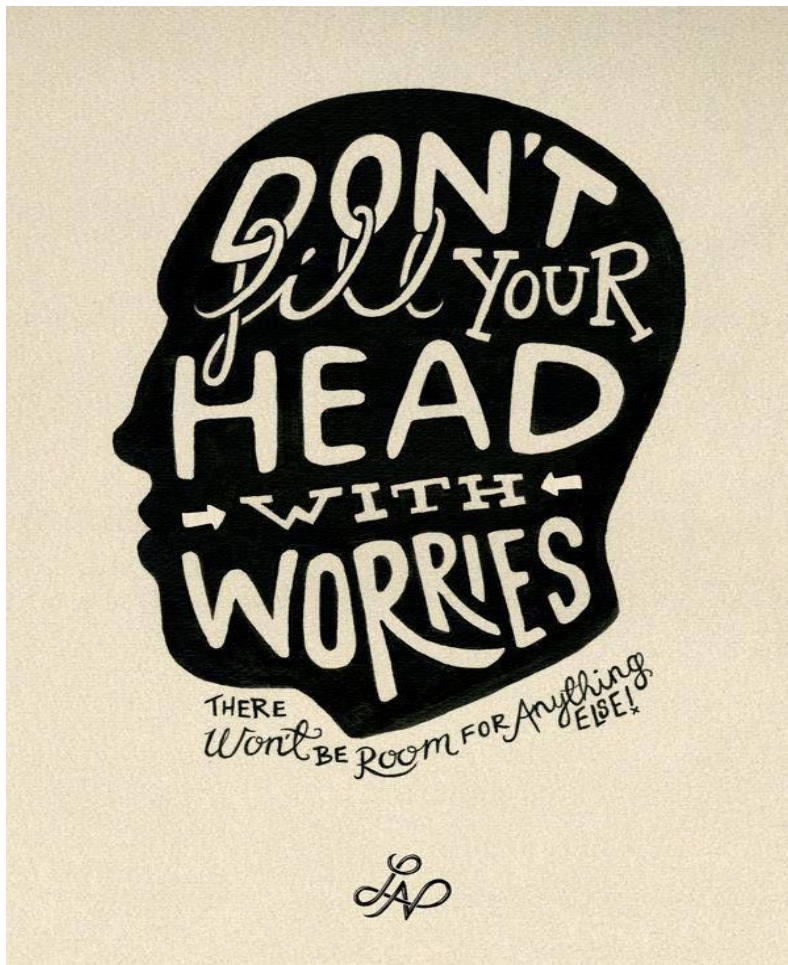 DON'T
fill YOUR
HEAD
WITH
WORRIES
THERE
Won't BE Room FOR Anything
ELSE!